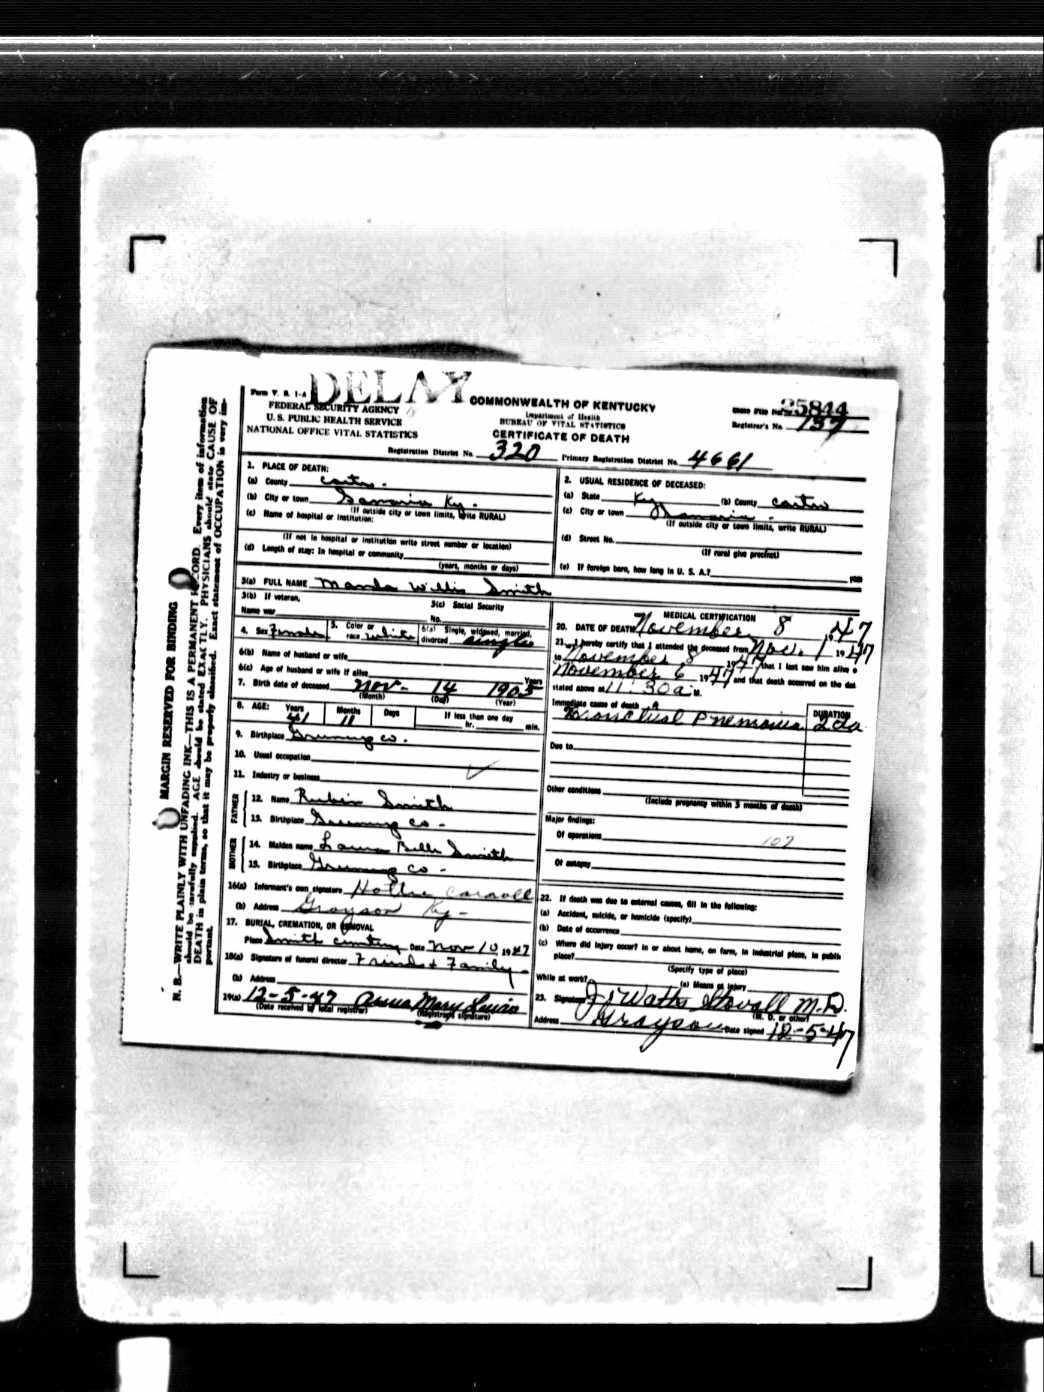 Form V. S. 1-A
DELAY
FEDERAL SECURITY AGENCY
U. S. PUBLIC HEALTH SERVICE
NATIONAL OFFICE VITAL STATISTICS
COMMONWEALTH OF KENTUCKY
Department of Health
BUREAU OF VITAL STATISTICS
CERTIFICATE OF DEATH
State File No. 25844
Registrar's No. 137
Registration District No. 320 Primary Registration District No. 4661
MARGIN RESERVED FOR BINDING
N. B.—WRITE PLAINLY WITH UNFADING INK—THIS IS A PERMANENT RECORD. Every item of information
should be carefully supplied. AGE should be stated EXACTLY. PHYSICIANS should state CAUSE OF
DEATH in plain terms, so that it may be properly classified. Exact statement of OCCUPATION is very im-
portant.
1. PLACE OF DEATH:
(a) County Carter
(b) City or town Ky.
(If outside city or town limits, write RURAL)
(c) Name of hospital or institution:
(If not in hospital or institution write street number or location)
(d) Length of stay: In hospital or community
(years, months or days)
2. USUAL RESIDENCE OF DECEASED:
(a) State Ky (b) County Carter
(c) City or town
(If outside city or town limits, write RURAL)
(d) Street No.
(If rural give precinct)
(e) If foreign born, how long in U. S. A.? years
3(a) FULL NAME Manda Willis Smith
3(b) If veteran,
Name war
3(c) Social Security
No.
4. Sex Female 5. Color or race white 6(a) Single, widowed, married, divorced single
6(b) Name of husband or wife
6(c) Age of husband or wife if alive Years
7. Birth date of deceased Nov- 14 1905
(Month) (Day) (Year)
8. AGE: Years 41 Months 11 Days If less than one day hr. min.
9. Birthplace Co.
10. Usual occupation
11. Industry or business
FATHER
12. Name Rubin Smith
13. Birthplace Co-
MOTHER
14. Maiden name Laura Belle Smith
15. Birthplace Co-
16(a) Informant's own signature Hollie Carroll
(b) Address Grayson Ky-
17. BURIAL, CREMATION, OR REMOVAL
Place Smith Date Nov 10 1947
18(a) Signature of funeral director Friends & Family
(b) Address
19(a) 12-5-47 Anna Mary Lewis
(Date received by local registrar) (Registrar's signature)
MEDICAL CERTIFICATION
20. DATE OF DEATH November 8 1947
21. I hereby certify that I attended the deceased from Nov. 1 1947
to November 8 1947 that I last saw him alive o
November 6 1947 and that death occurred on the dat
stated above at 11:30 a M.
Immediate cause of death
Bronchial Pnemonia
DURATION
2 da
Due to
Other conditions
(Include pregnancy within 3 months of death)
Major findings:
Of operations
107
Of autopsy
22. If death was due to external causes, fill in the following:
(a) Accident, suicide, or homicide (specify)
(b) Date of occurrence
(c) Where did injury occur? in or about home, on farm, in industrial place, in publi
place?
(Specify type of place)
While at work? (e) Means of injury
23. Signature J. Watts Stovall M.D.
(M. D. or other)
Address Grayson Date signed 12-5-47